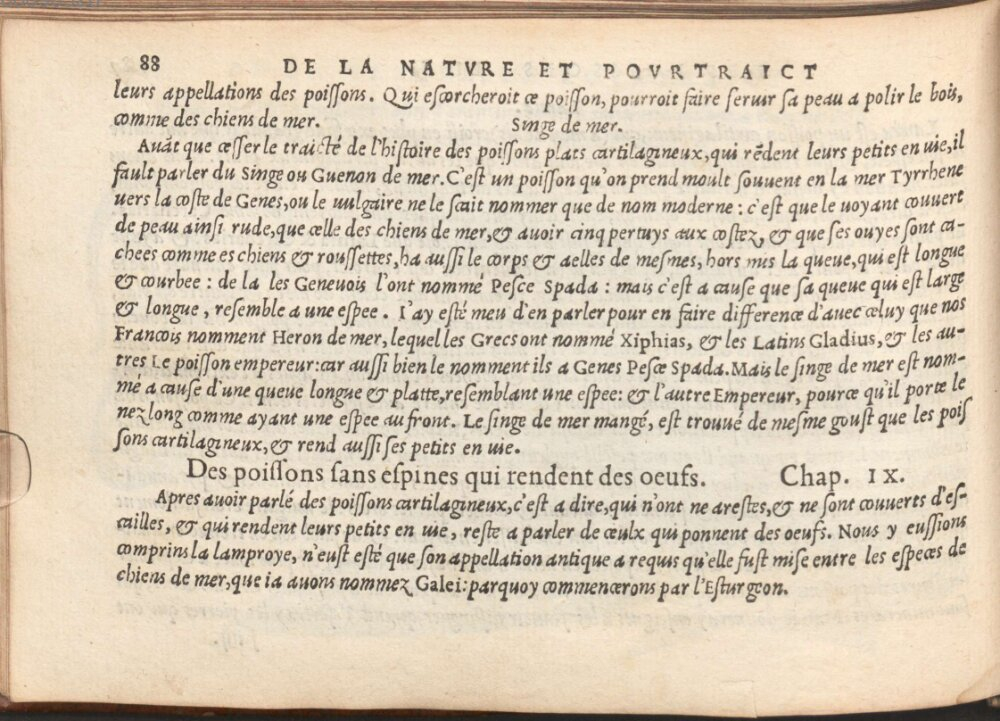 88 DE LA NATVRE ET POVRTRAICT
leurs appellations des poiſſons. Qui eſcorcheroit ce poiſſon, pourroit faire ſeruir ſa peau a polir le bois,
comme des chiens de mer. Singe de mer.
Auãt que ceſſer le traicté de l'hiſtoire des poiſſons plats cartilagineux, qui rẽdent leurs petits en vie, il
fault parler du Singe ou Guenon de mer. C'eſt un poiſſon qu'on prend moult ſouuent en la mer Tyrrhene
uers la coſte de Genes, ou le uulgaire ne le ſcait nommer que de nom moderne : c'eſt que le uoyant couuert
de peau ainſi rude, que celle des chiens de mer, & auoir cinq pertuys aux coſtez, & que ſes ouyes ſont ca-
chees comme es chiens & rouſſettes, ha auſſi le corps & aelles de meſmes, hors mis la queue, qui eſt longue
& courbee : de la les Geneuois l'ont nommé Peſce Spada : mais c'eſt a cauſe que ſa queue qui eſt large
& longue, reſemble a une eſpee. I'ay eſté meu d'en parler pour en faire difference d'auec celuy que nos
Francois nomment Heron de mer, lequel les Grecs ont nommé Xiphias, & les Latins Gladius, & les au-
tres Le poiſſon empereur: car auſſi bien le nomment ils a Genes Peſce Spada. Mais le ſinge de mer eſt nom-
mé a cauſe d'une queue longue & platte, reſemblant une eſpee: & l'autre Empereur, pource qu'il porte le
nez long comme ayant une eſpee au front. Le ſinge de mer mangé, eſt trouué de meſme gouſt que les poiſ
ſons cartilagineux, & rend auſſi ſes petits en vie.
Des poiſſons ſans eſpines qui rendent des oeufs. Chap. IX.
Apres auoir parlé des poiſſons cartilagineux, c'eſt a dire, qui n'ont ne areſtes, & ne ſont couuerts d'eſ-
cailles, & qui rendent leurs petits en vie, reſte a parler de ceulx qui ponnent des oeufs. Nous y euſſions
comprins la lamproye, n'euſt eſté que ſon appellation antique a requis qu'elle fuſt miſe entre les eſpeces de
chiens de mer, que ia auons nommez Galei: parquoy commencerons par l'Eſturgeon.